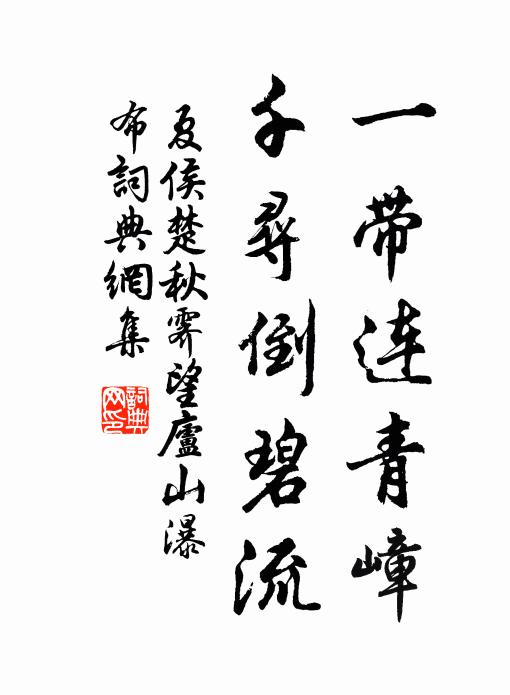 一带连青嶂
千尋倒碧流
夏侯楚秋霽望廬山瀑
布詞典網集
詞典网印